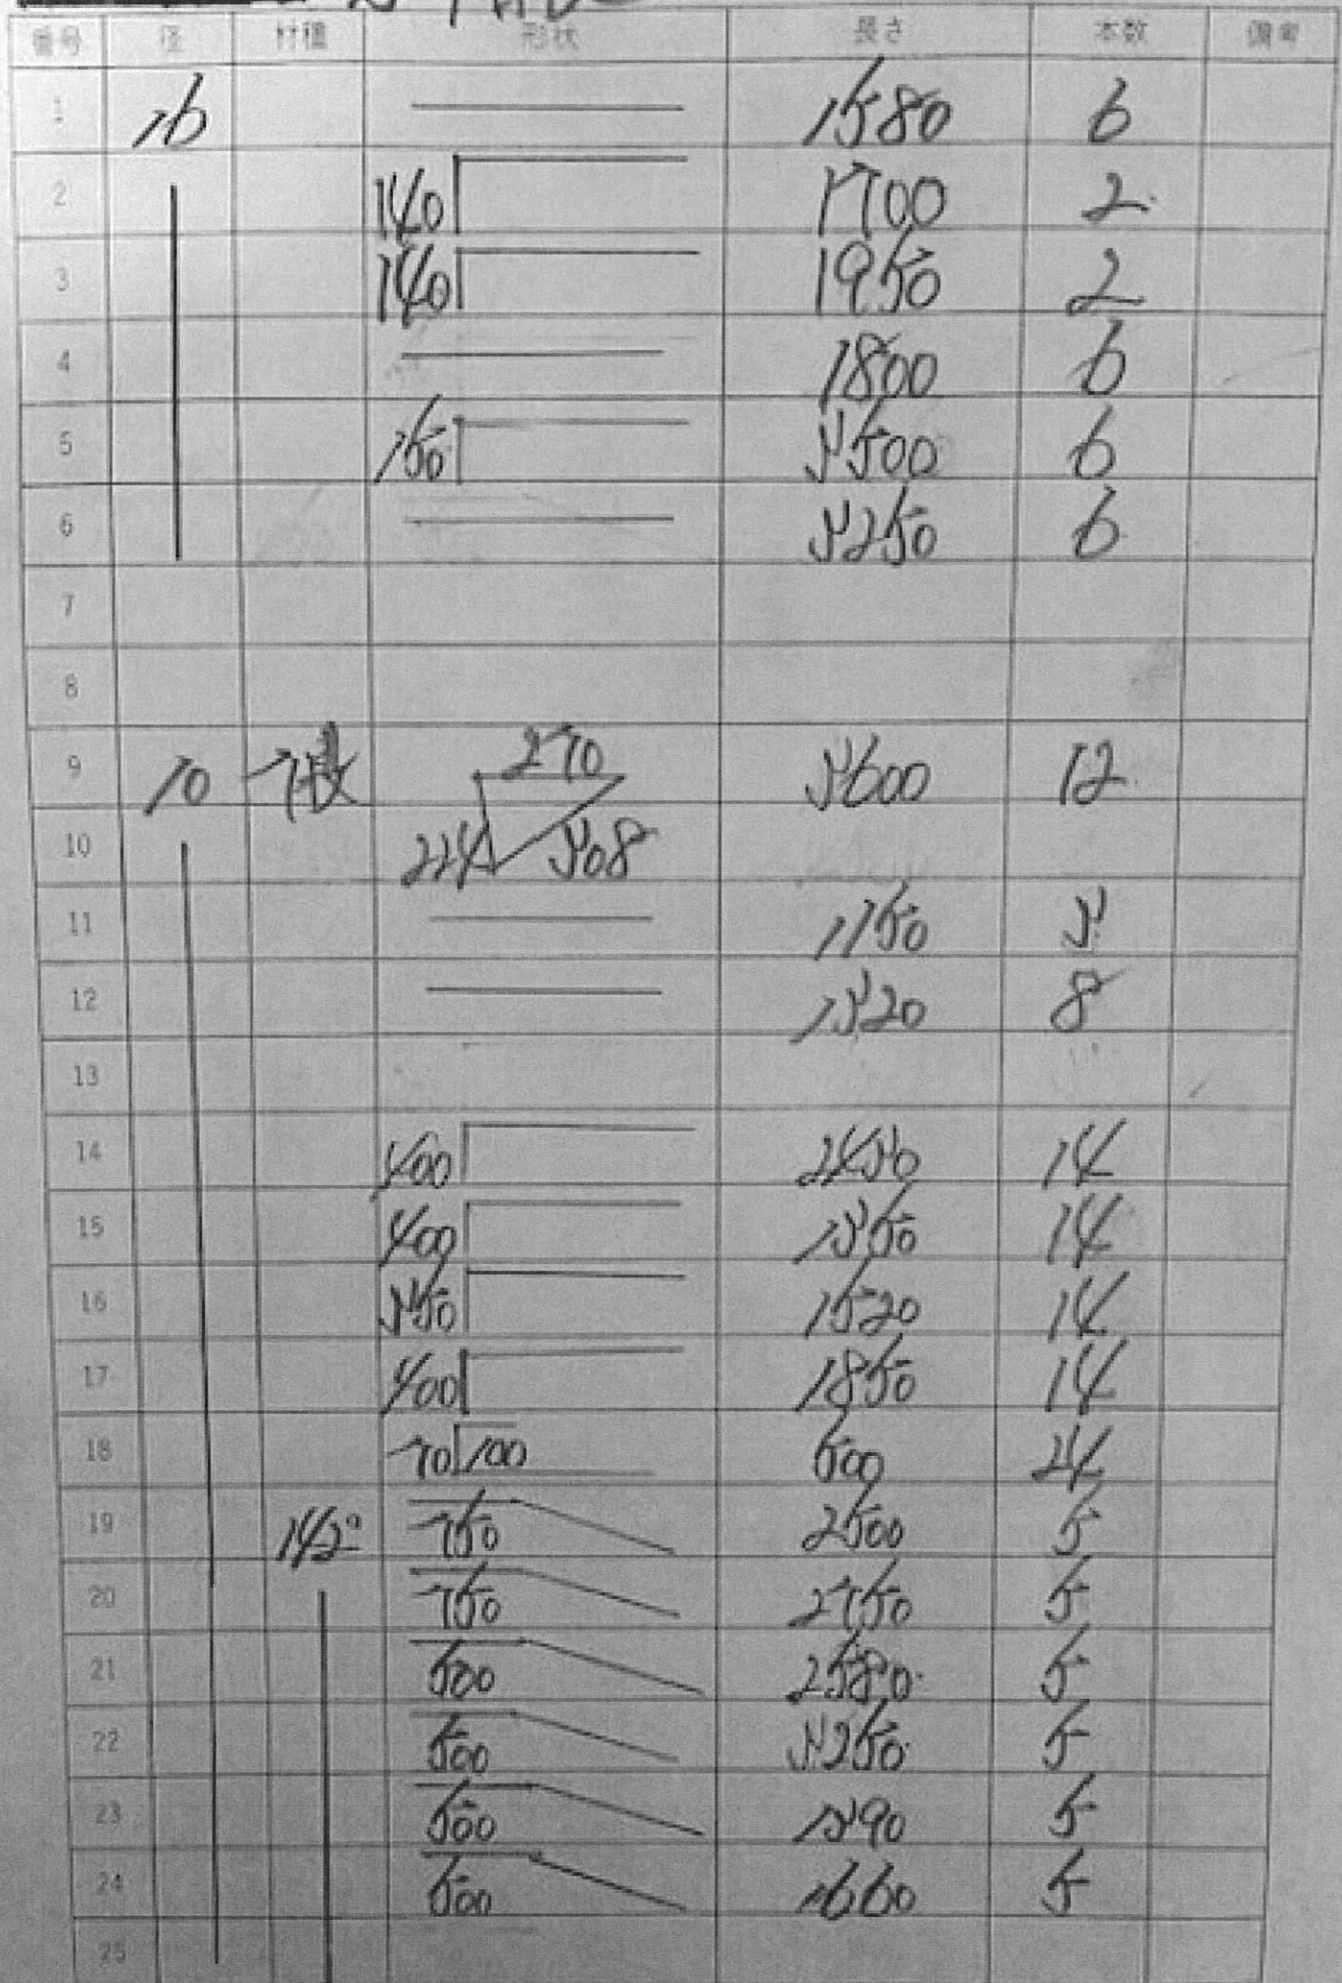 番号 径 材種 形状 長さ 本数 備考
1 16 1580 6
2 140 1700 2
3 140 1950 2
4 1800 6
5 150 3500 6
6 3250 6
7
8
9 10 270 3600 12
10 224 308
11 1150 3
12 1320 8
13
14 400 2430 14
15 400 1350 14
16 350 1520 14
17 400 1850 14
18 70 100 500 24
19 142° 750 2500 5
20 750 2750 5
21 500 2580 5
22 500 3250 5
23 500 1390 5
24 500 1660 5
25